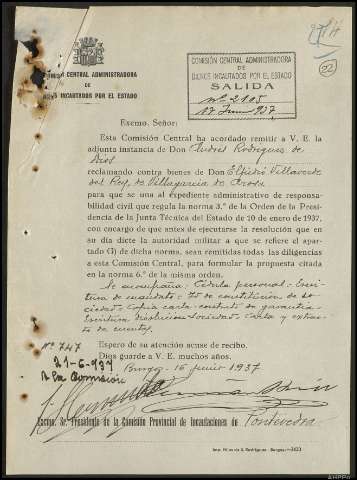 22
COMISIÓN CENTRAL ADMINISTRADORA
DE
BIENES INCAUTADOS POR EL ESTADO
COMISIÓN CENTRAL ADMINISTRADORA
DE
BIENES INCAUTADOS POR EL ESTADO
SALIDA
nº 2105
17 Junio 937
Excmo. Señor:
Esta Comisión Central ha acordado remitir a V. E. la
adjunta instancia de Don Andres Rodriguez de
Dios
reclamando contra bienes de Don Elpidio Villaverde
del Rey, de Villagarcia de Arosa
para que se una al expediente administrativo de responsa-
bilidad civil que regula la norma 3.ª de la Orden de la Presi-
dencia de la Junta Técnica del Estado de 10 de enero de 1937,
con encargo de que antes de ejecutarse la resolución que en
su día dicte la autoridad militar a que se refiere el apar-
tado G) de dicha norma, sean remitidas todas las diligencias
a esta Comisión Central, para formular la propuesta citada
en la norma 6.ª de la misma orden.
Se acompaña: Cédula personal - Escri-
tura de mandato - Id de constitución de so-
ciedad - Copia carta contrato de garantia -
Escritura disolucion sociedad carta y extrac-
to de cuentas.
Nº 747
21-6-937
A la Comisión
Espero de su atención acuse de recibo.
Dios guarde a V. E. muchos años.
Burgos, 16 junio 1937
Excmo. Sr. Presidente de la Comisión Provincial de Incautaciones de Pontevedra